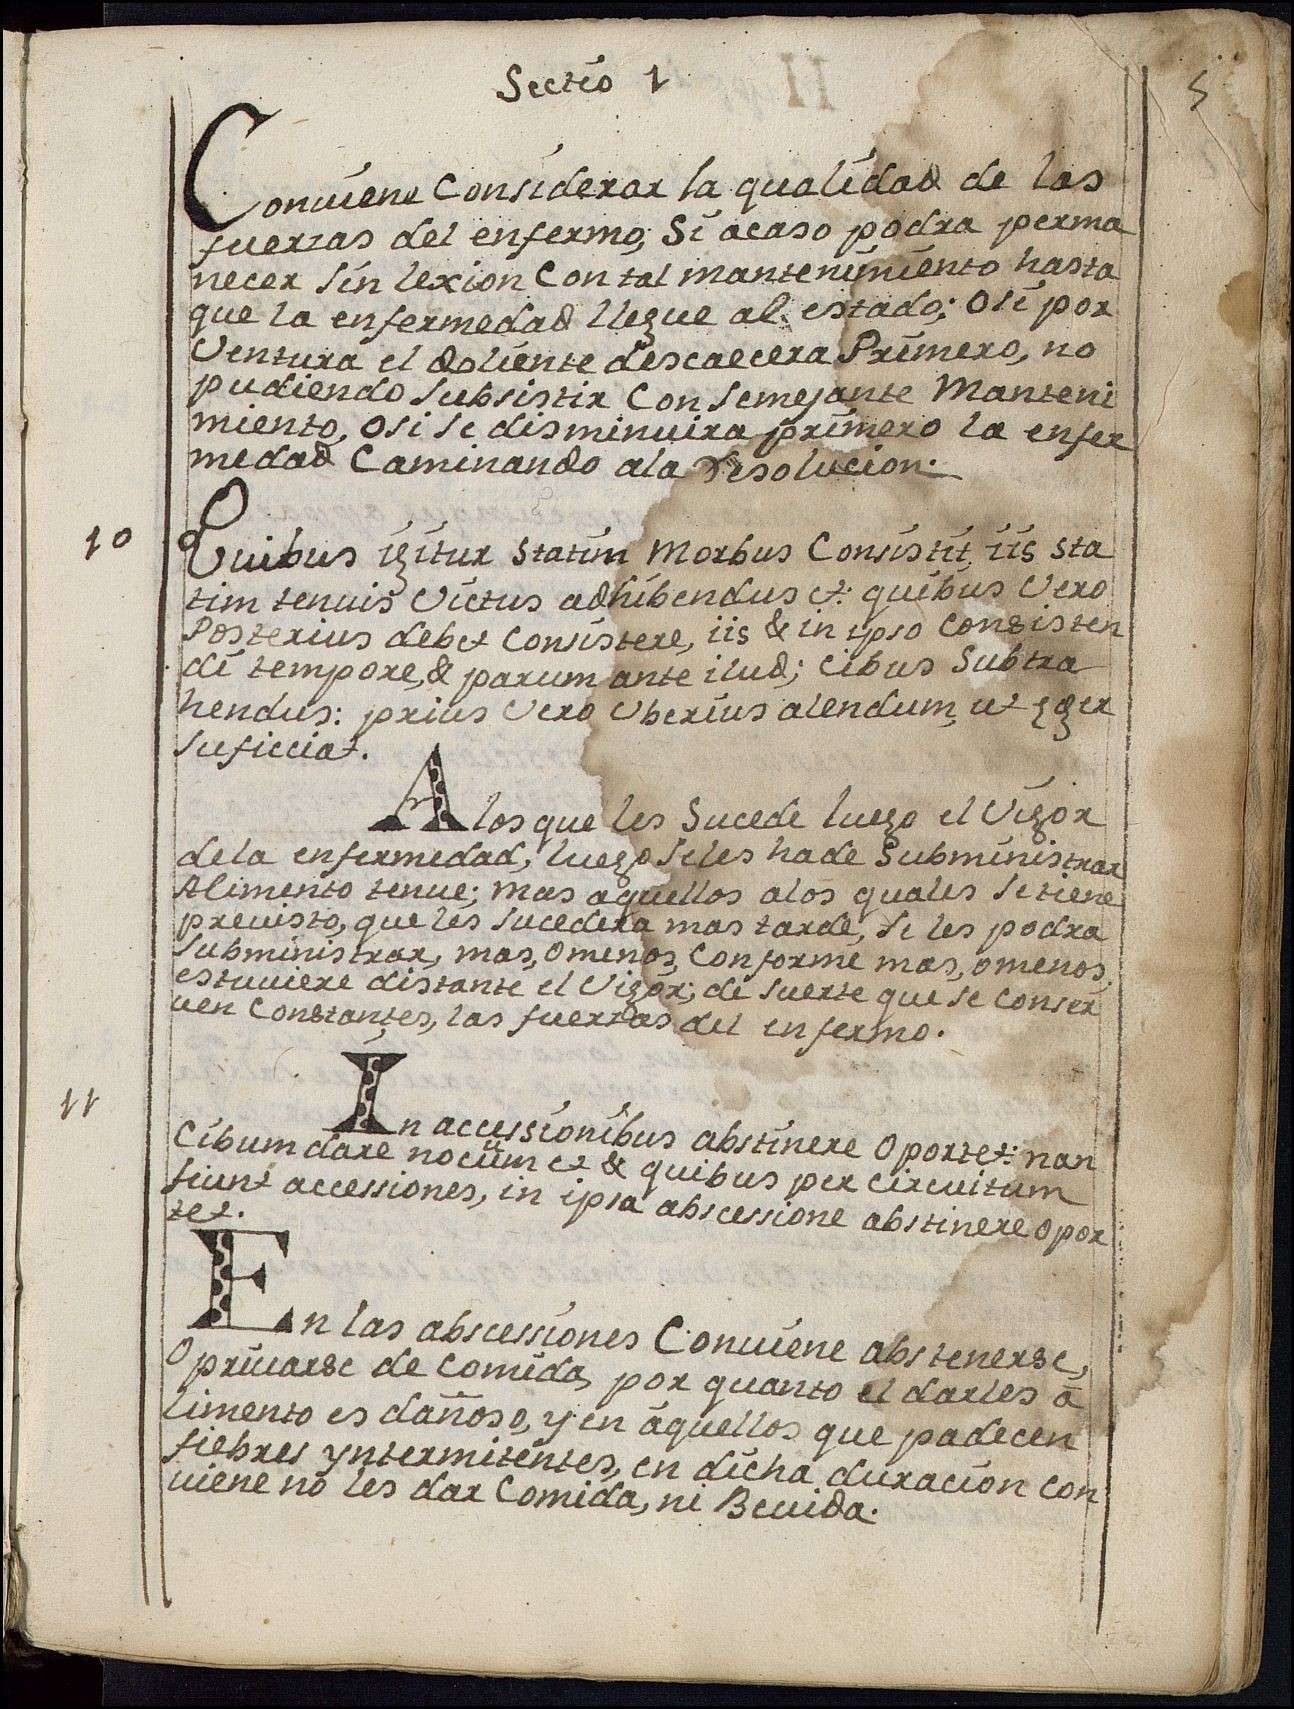 Sectio 1
5
Conuiene Considerar la qualidad de las
fuerzas del enfermo; Si acaso podra perma
necer sin lexion Con tal mantenimiento hasta
que la enfermedad llegue al estado; O si por
Ventura el doliente descaecera Primero, no
pudiendo Subsistir Con Semejante Manteni
miento, O si se disminuira primero la enfer
medad Caminando a la resolucion.
10
Quibus igitur Statim Morbus Consistit, iis sta
tim tenuis Victus adhibendus et: quibus Vero
Posterius debet Consistere, iis & in ipso Consisten
di tempore, & parum ante ilud; Cibus Subtra
hendus: prius Vero Vberius alendum, ut eger
suficciat.
A los que les Sucede luego el Vigor
de la enfermedad, luego se les ha de Subministrar
Alimento tenue; mas aquellos a los quales se tiene
preuisto, que les sucedera mas tarde, se les podra
Subministrar, mas, o menos, Conforme mas, o menos,
estuuiere distante el Vigor; de suerte que se Conser
uen Constantes, las fuerzas del enfermo.
11
In accessionibus abstinere Oportet: nan
Cibum dare nocuum et & quibus per Circuitum
fiunt accessiones, in ipsa abscessione abstinere Opor
tet.
En las abscessiones Conuiene abstenerse,
O priuarse de Comida, por quanto el darles a
limento es dañoso, y en aquellos que padecen
fiebres yntermitentes, en dicha duracion Con
uiene no les dar Comida, ni Beuida.